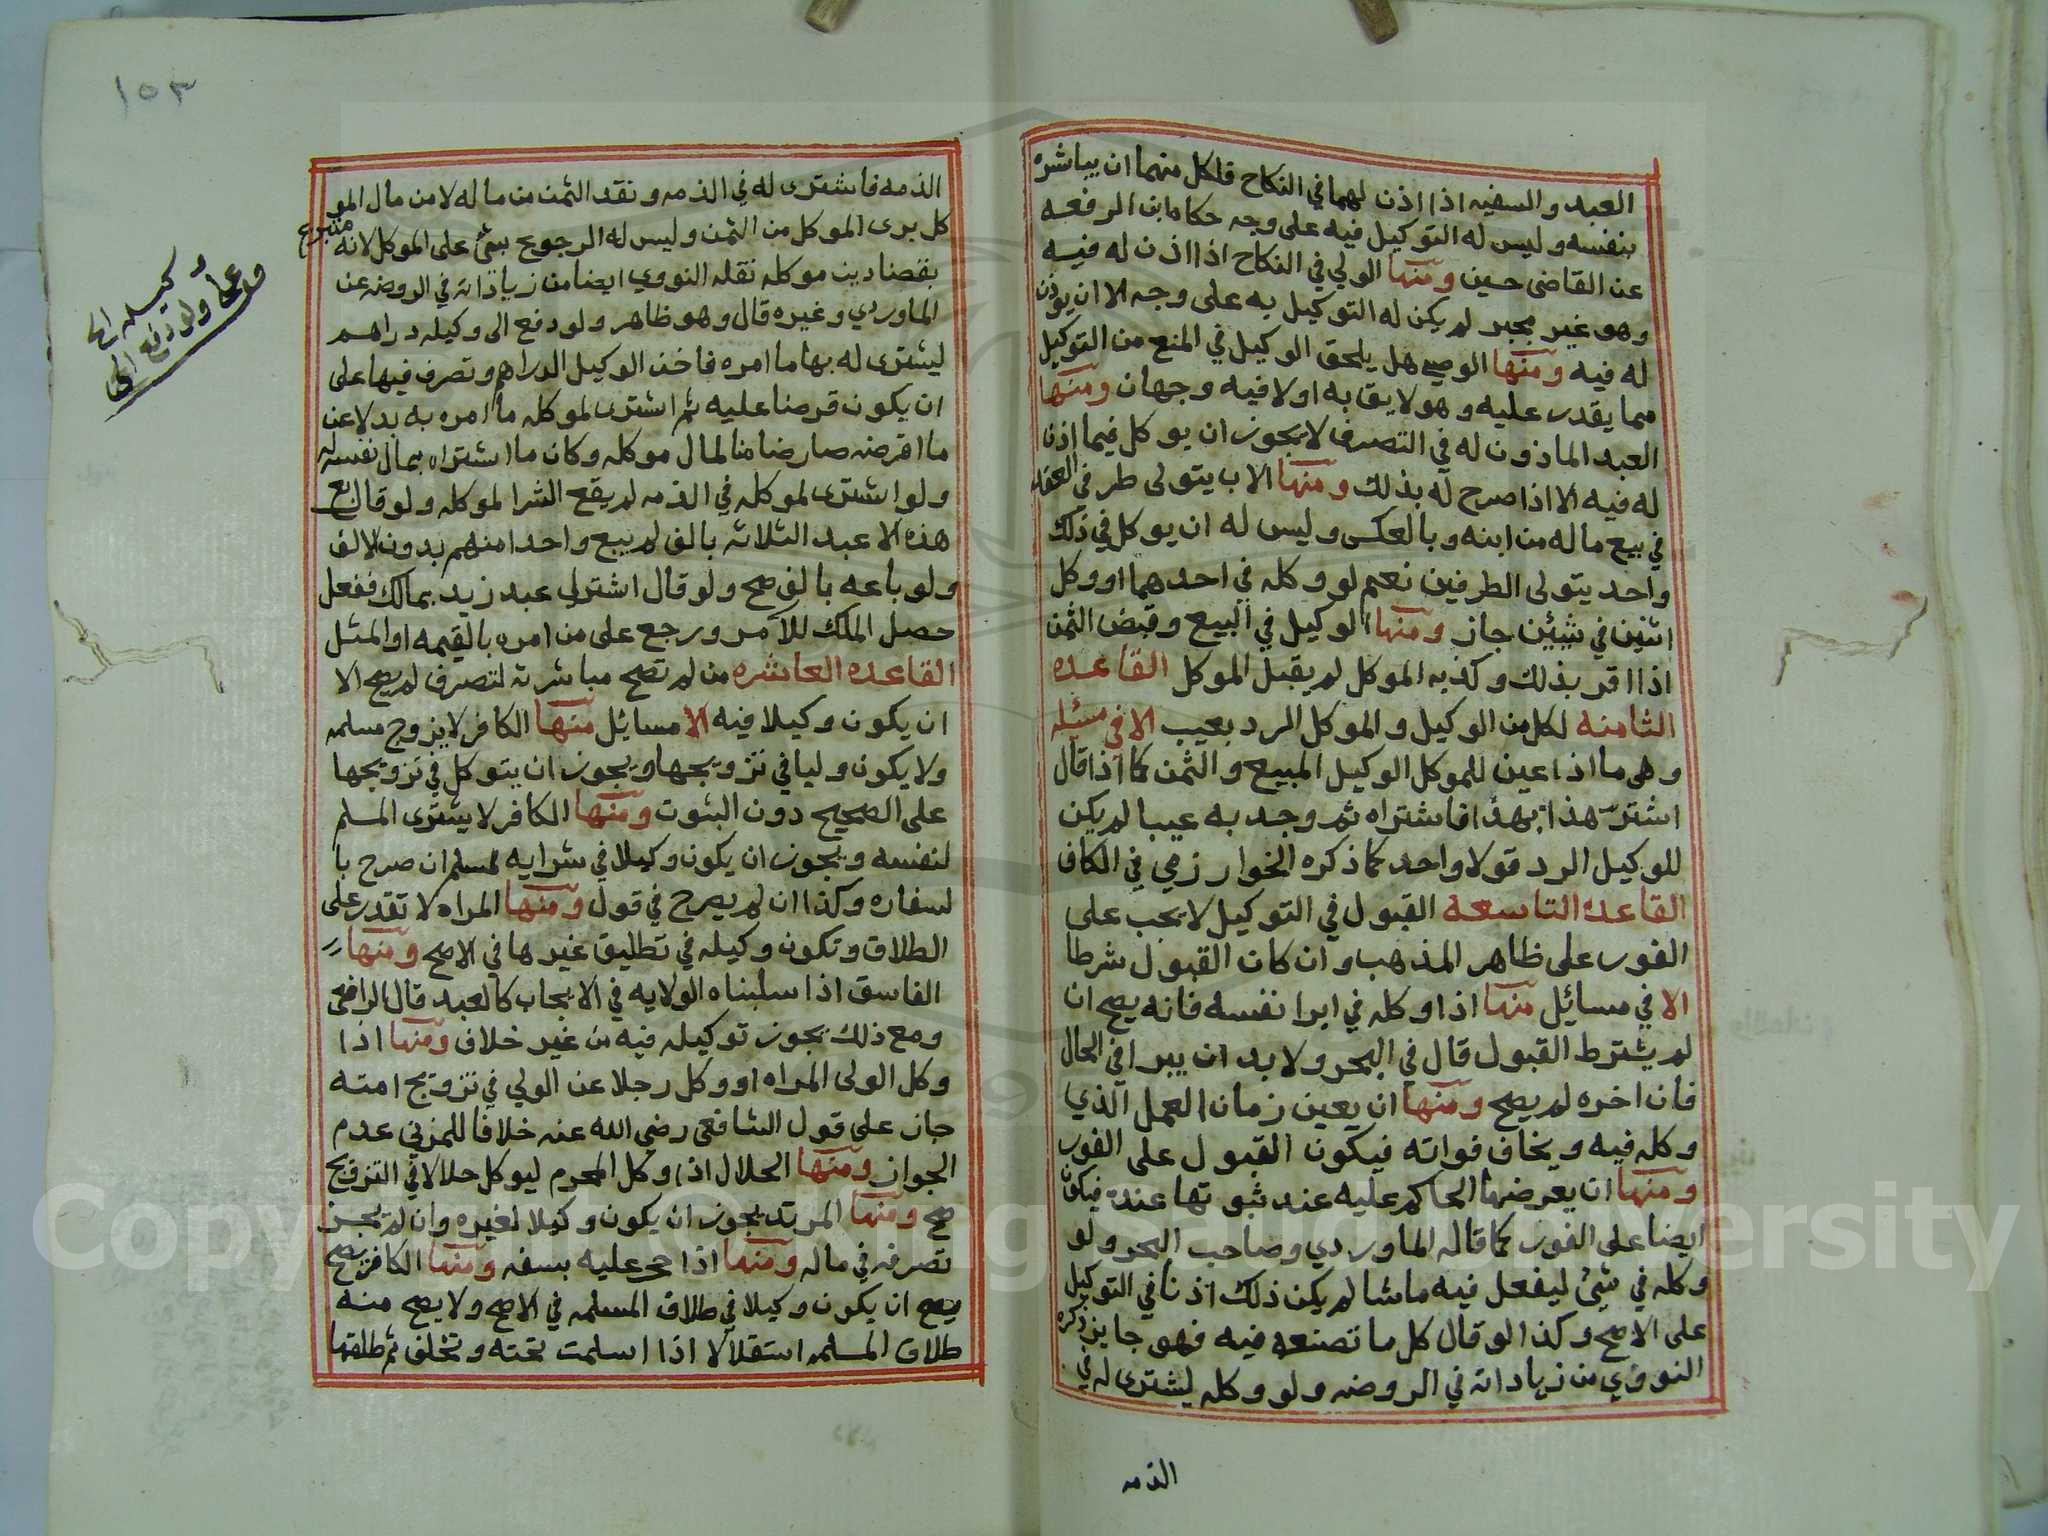 العبد والسفيه اذا اذن لهما في النكاح فلكل منهما ان يباشره
بنفسه وليس له التوكيل فيه على وجه حكاه ابن الرفعه
عن القاضى حسين ومنها الولي في النكاح اذا اذن له فيه
وهو غير مجبر لم يكن له التوكيل به على وجه الا ان يوذن
له فيه ومنها الوصي هل يلحق الوكيل في المنع من التوكيل
مما يقدر عليه وهو لايق به اولا فيه وجهان ومنها
العبد الماذون له في التصرف لا يجوز ان يوكل فيما اذن
له فيه الا اذا صرح له بذلك ومنها الاب يتولى طرفي العقد
في بيع ماله من ابنه وبالعكس وليس له ان يوكل في ذلك
واحد يتولى الطرفين نعم لو وكله في احدهما او وكل
اثنين في شيئين جاز ومنها الوكيل في البيع وقبض الثمن
اذا اقر بذلك وكذبه الموكل لم يقبل الموكل القاعده
الثامنه لكل من الوكيل والموكل الرد بعيب الا في مسئله
وهى ما اذا عين للموكل الوكيل المبيع والثمن كما اذا قال
اشتر هذا بهذا فاشتراه ثم وجد به عيبا لم يكن
للوكيل الرد قولا واحد كما ذكره الخوارزمي في الكافى
القاعدة التاسعه القبول في التوكيل لا يجب على
الفور على ظاهر المذهب وان كان القبول شرطا
الا في مسائل منها اذا وكله في ابرا نفسه فانه يصح ان
لم يشترط القبول قال في البحر ولا بد ان يبرا في الحال
فان اخره لم يصح ومنها ان يعين زمان العمل الذي
وكله فيه ويخاف فواته فيكون القبول على الفور
ومنها ان يعرضها الحاكم عليه عند ثبوتها عنده فيكون
ايضا على الفور كما قاله الماوردي وصاحب البحر ولو
وكله في شئ ليفعل فيه ماشا لم يكن ذلك اذنا في التوكيل
على الاصح وكذا لو قال كل ما تصنعه فيه فهو جايز ذكره
النووي من زياداته في الروضه ولو وكله ليشترى له في
الذمه
١٥٣
الذمه فاشترى له في الذمه ونقد الثمن من ماله لا من مال المو
كل برى الموكل من الثمن وليس له الرجوع بشئ على الموكل لانه متبرع
بقضا دين موكله نقله النووي ايضا من زياداته في الروضه عن
الماوردي وغيره قال وهو ظاهر ولو دفع الى وكيله دراهم
ليشترى له بها ما امره فاخذ الوكيل الدراهم وتصرف فيها على
ان يكون قرضا عليه ثم اشترى لموكله ما امره به بدلا عن
ما اقرضه صار ضامنا لمال موكله وكان ما اشتراه بمال نفسه له
ولو اشترى لموكله في الذمه لم يقع الشرا لموكله ولو قال بع
هذه الاعبد الثلاثه بالف لم يبع واحدا منهم بدون الالف
ولو باعه بالف صح ولو قال اشتر لي عبد زيد بمالك ففعل
حصل الملك للآمر ورجع على من امره بالقيمه او المثل
القاعده العاشره من لم تصح مباشرته لتصرف لم يصح الا
ان يكون وكيلا فيه الا مسايل منها الكافر لا يزوج مسلمه
ولا يكون وليا في تزويجها ويجوز ان يتوكل في تزويجها
على الصحيح دون البثوت ومنها الكافر لا يشترى المسلم
لنفسه ويجوز ان يكون وكيلا في شرايه لمسلم ان صرح با
لسفاره وكذا ان لم يصرح في قول ومنها المراه لا تقدر على
الطلاق وتكون وكيله في تطليق غيرها في الاصح ومنها
الفاسق اذا سلبناه الولايه في الايجاب كالعبد قال الرافعى
ومع ذلك يجوز توكيله فيه من غير خلاف ومنها اذا
وكل الولى المراه او وكل رجلا عن الولي في تزويج امته
جاز على قول الشافعى رضى الله عنه خلافا للمزني عدم
الجواز ومنها الحلال اذا وكل المحرم ليوكل حلالا في التزويج
صح ومنها المرتد يجوز ان يكون وكيلا لغيره وان لم يجز
تصرفه في ماله ومنها اذا حجر عليه بسفه ومنها الكافر يصح
يصح ان يكون وكيلا في طلاق المسلمه في الاصح ولا يصح منه
طلاق المسلمه استقلالا اذا اسلمت تحته وتخلف ثم طلقها
ولو دفع الى
وكيله الخ
Copyright © King Saud University